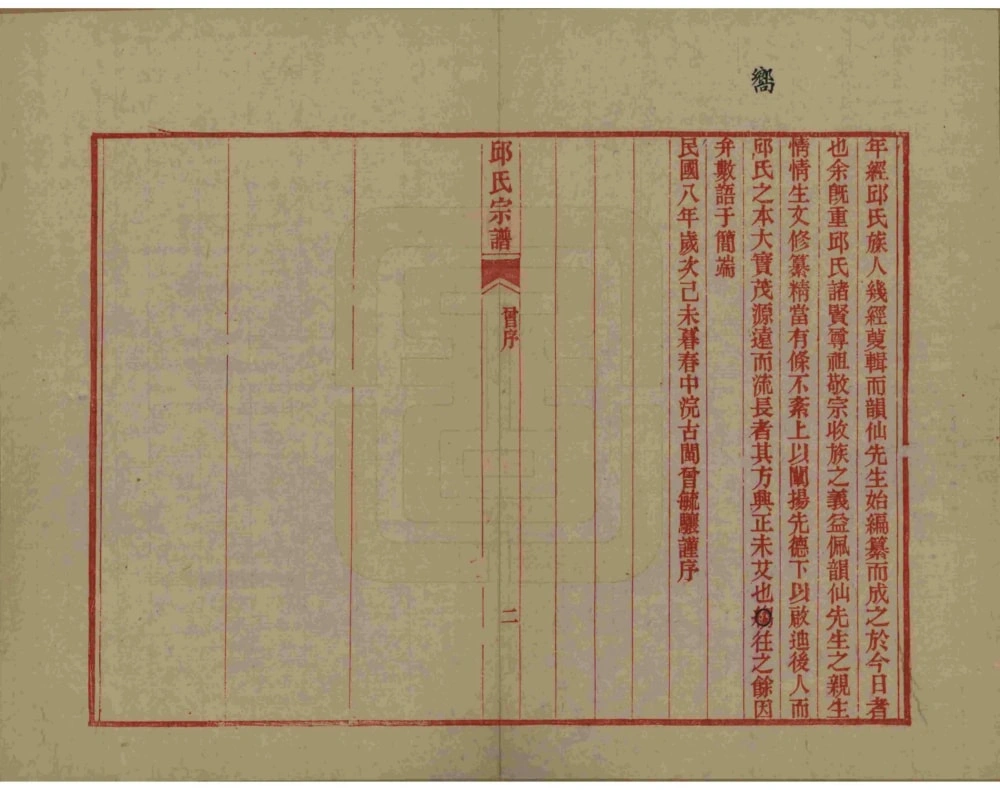 嚮
年經邱氏族人幾經蒐輯而韻仙先生始編纂而成之於今日者
也余旣重邱氏諸賢尊祖敬宗收族之義益佩韻仙先生之親生
情情生文修纂精當有條不紊上以闡揚先德下以啟迪後人而
邱氏之本大實茂源遠而流長者其方興正未艾也往之餘因
弁數語于簡端
民國八年歲次己未暮春中浣古閩曾毓驤謹序
邱氏宗譜
曾序
二